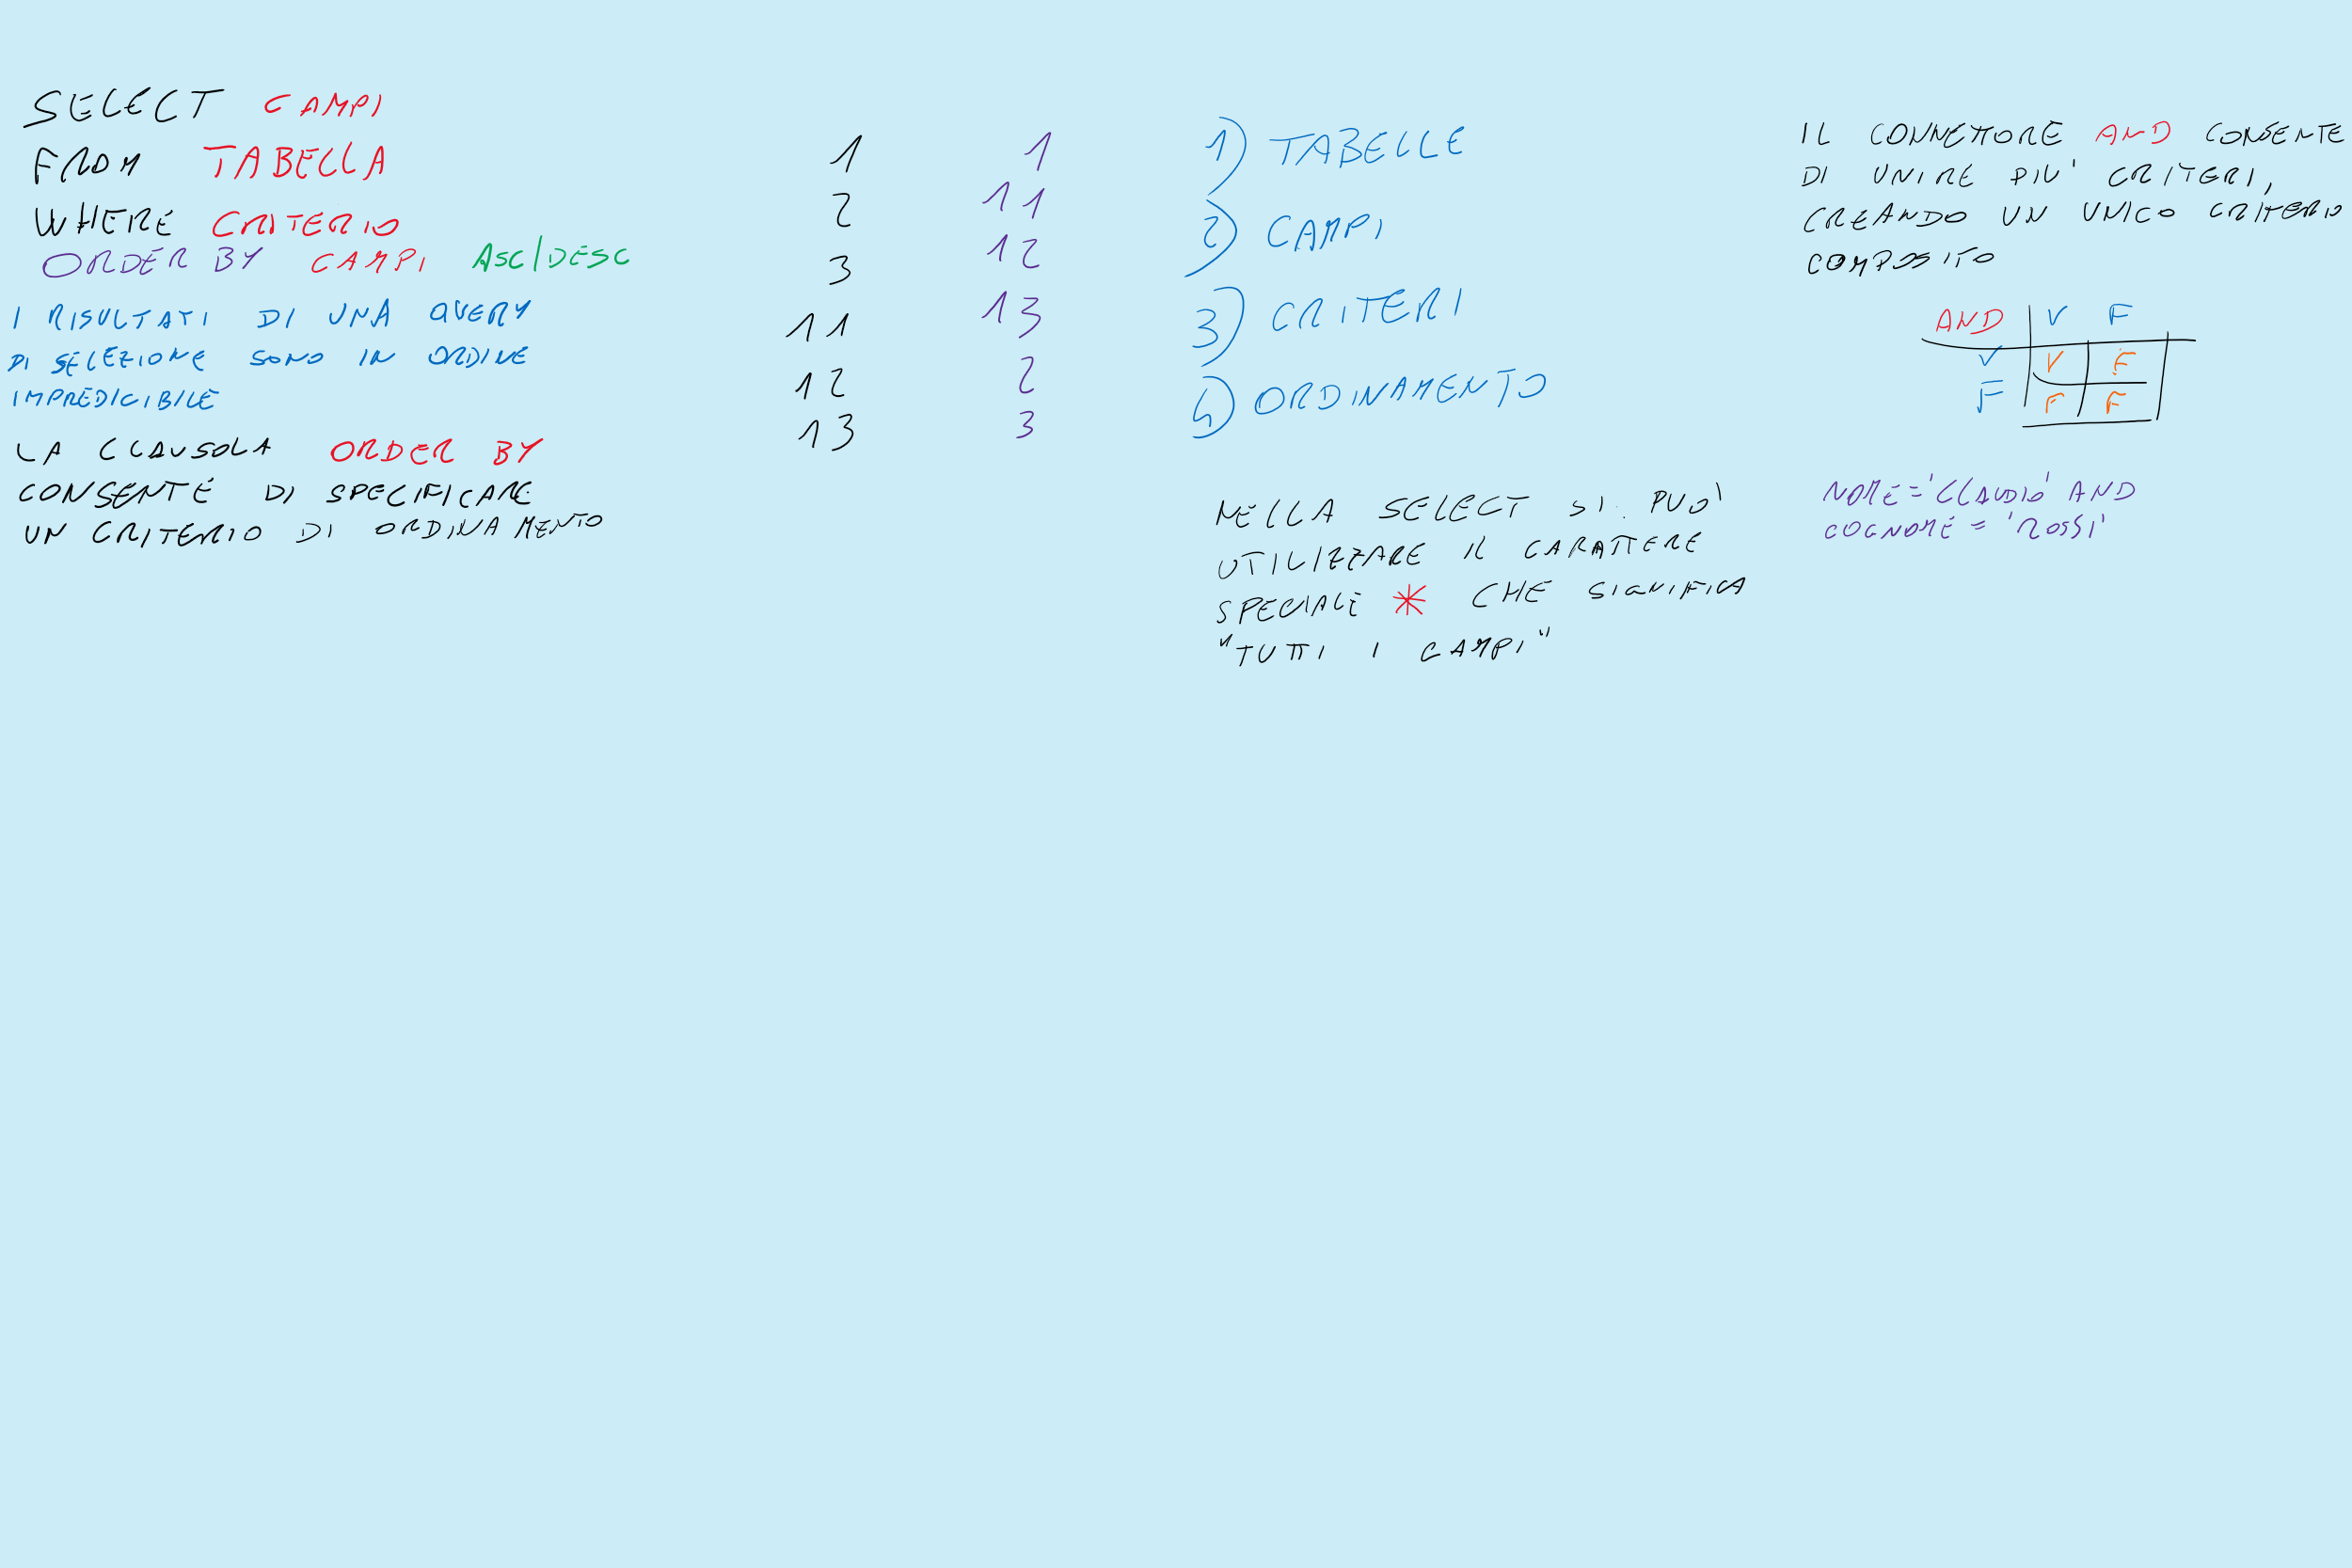 SELECT CAMPI
FROM TABELLA
WHERE CRITERIO
ORDER BY CAMPI ASC/DESC
I RISULTATI DI UNA QUERY
DI SELEZIONE SONO IN ORDINE
IMPREDICIBILE
LA CLAUSOLA ORDER BY
CONSENTE DI SPECIFICARE
UN CRITERIO DI ORDINAMENTO
1 1
2 11
3 12
11 13
12 2
13 3
1) TABELLE
2) CAMPI
3) CRITERI
4) ORDINAMENTO
NELLA SELECT SI PUO'
UTILIZZARE IL CARATTERE
SPECIALE * CHE SIGNIFICA
"TUTTI I CAMPI"
IL CONNETTORE AND CONSENTE
DI UNIRE PIU' CRITERI,
CREANDO UN UNICO CRITERIO
COMPOSITO
AND V F
V V F
F F F
NOME='CLAUDIO' AND
COGNOME = 'ROSSI'